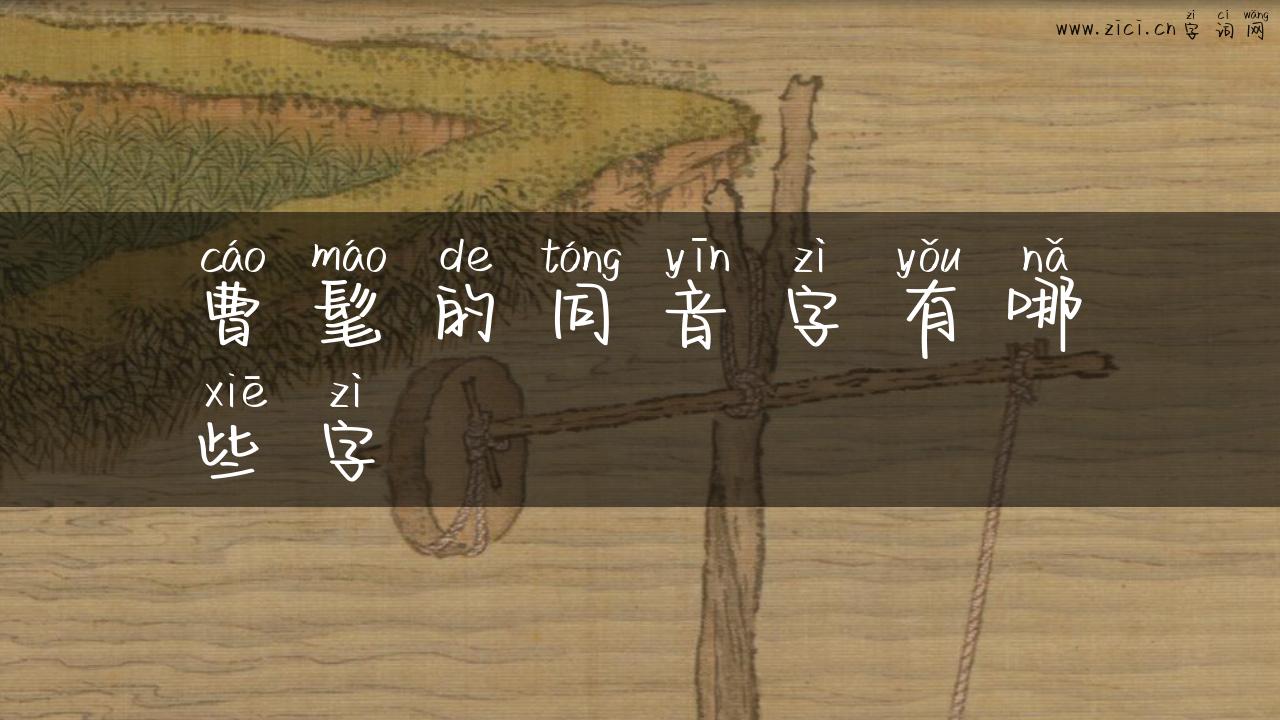 zì cí wǎng
www.zici.cn 字词网
cáo máo de tóng yīn zì yǒu nǎ
曹髦的同音字有哪
xiē zì
些字